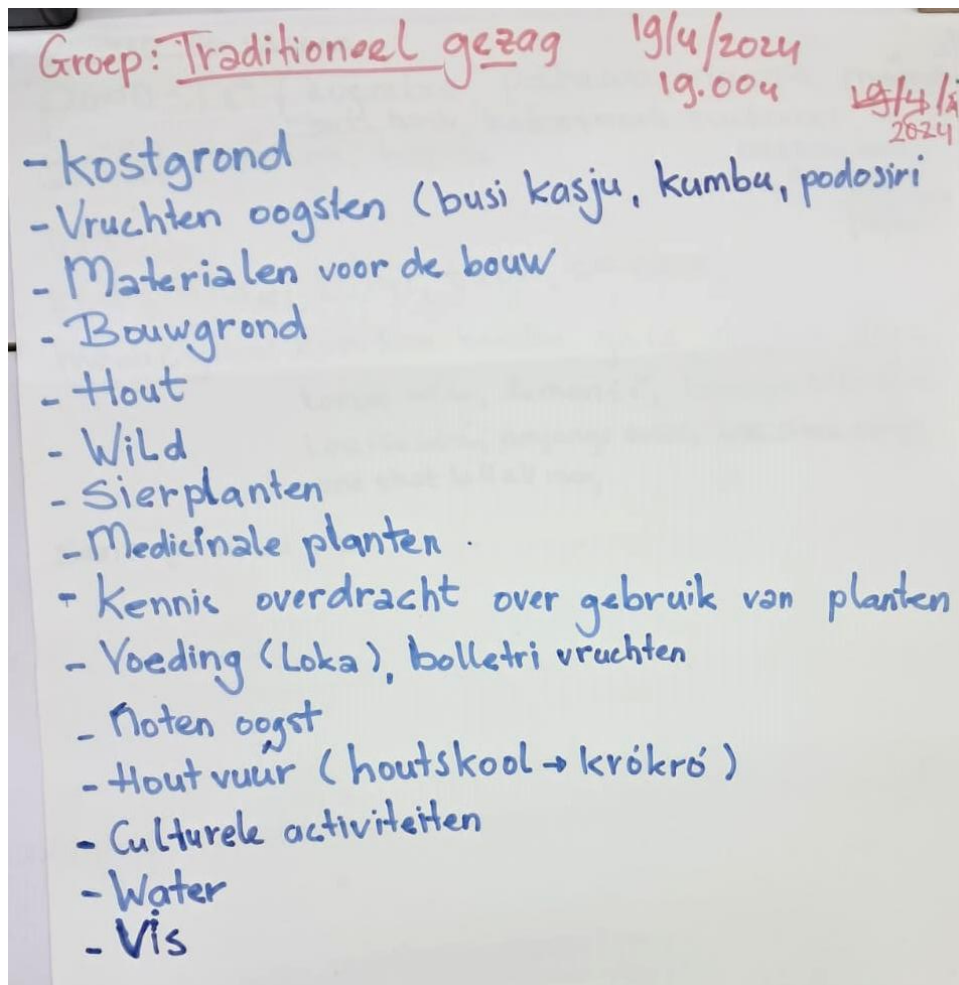 Groep: Traditioneel gezag 19/4/2024
19.00u
19/4/
2024
- Kostgrond
- Vruchten oogsten (busi kasju, kumbu, podosiri
- Materialen voor de bouw
- Bouwgrond
- Hout
- Wild
- Sierplanten
- Medicinale planten.
- Kennis overdracht over gebruik van planten
- Voeding (Loka), bolletri vruchten
- Noten oogst
- Hout vuur (houtskool → krókró)
- Culturele activiteiten
- Water
- Vis